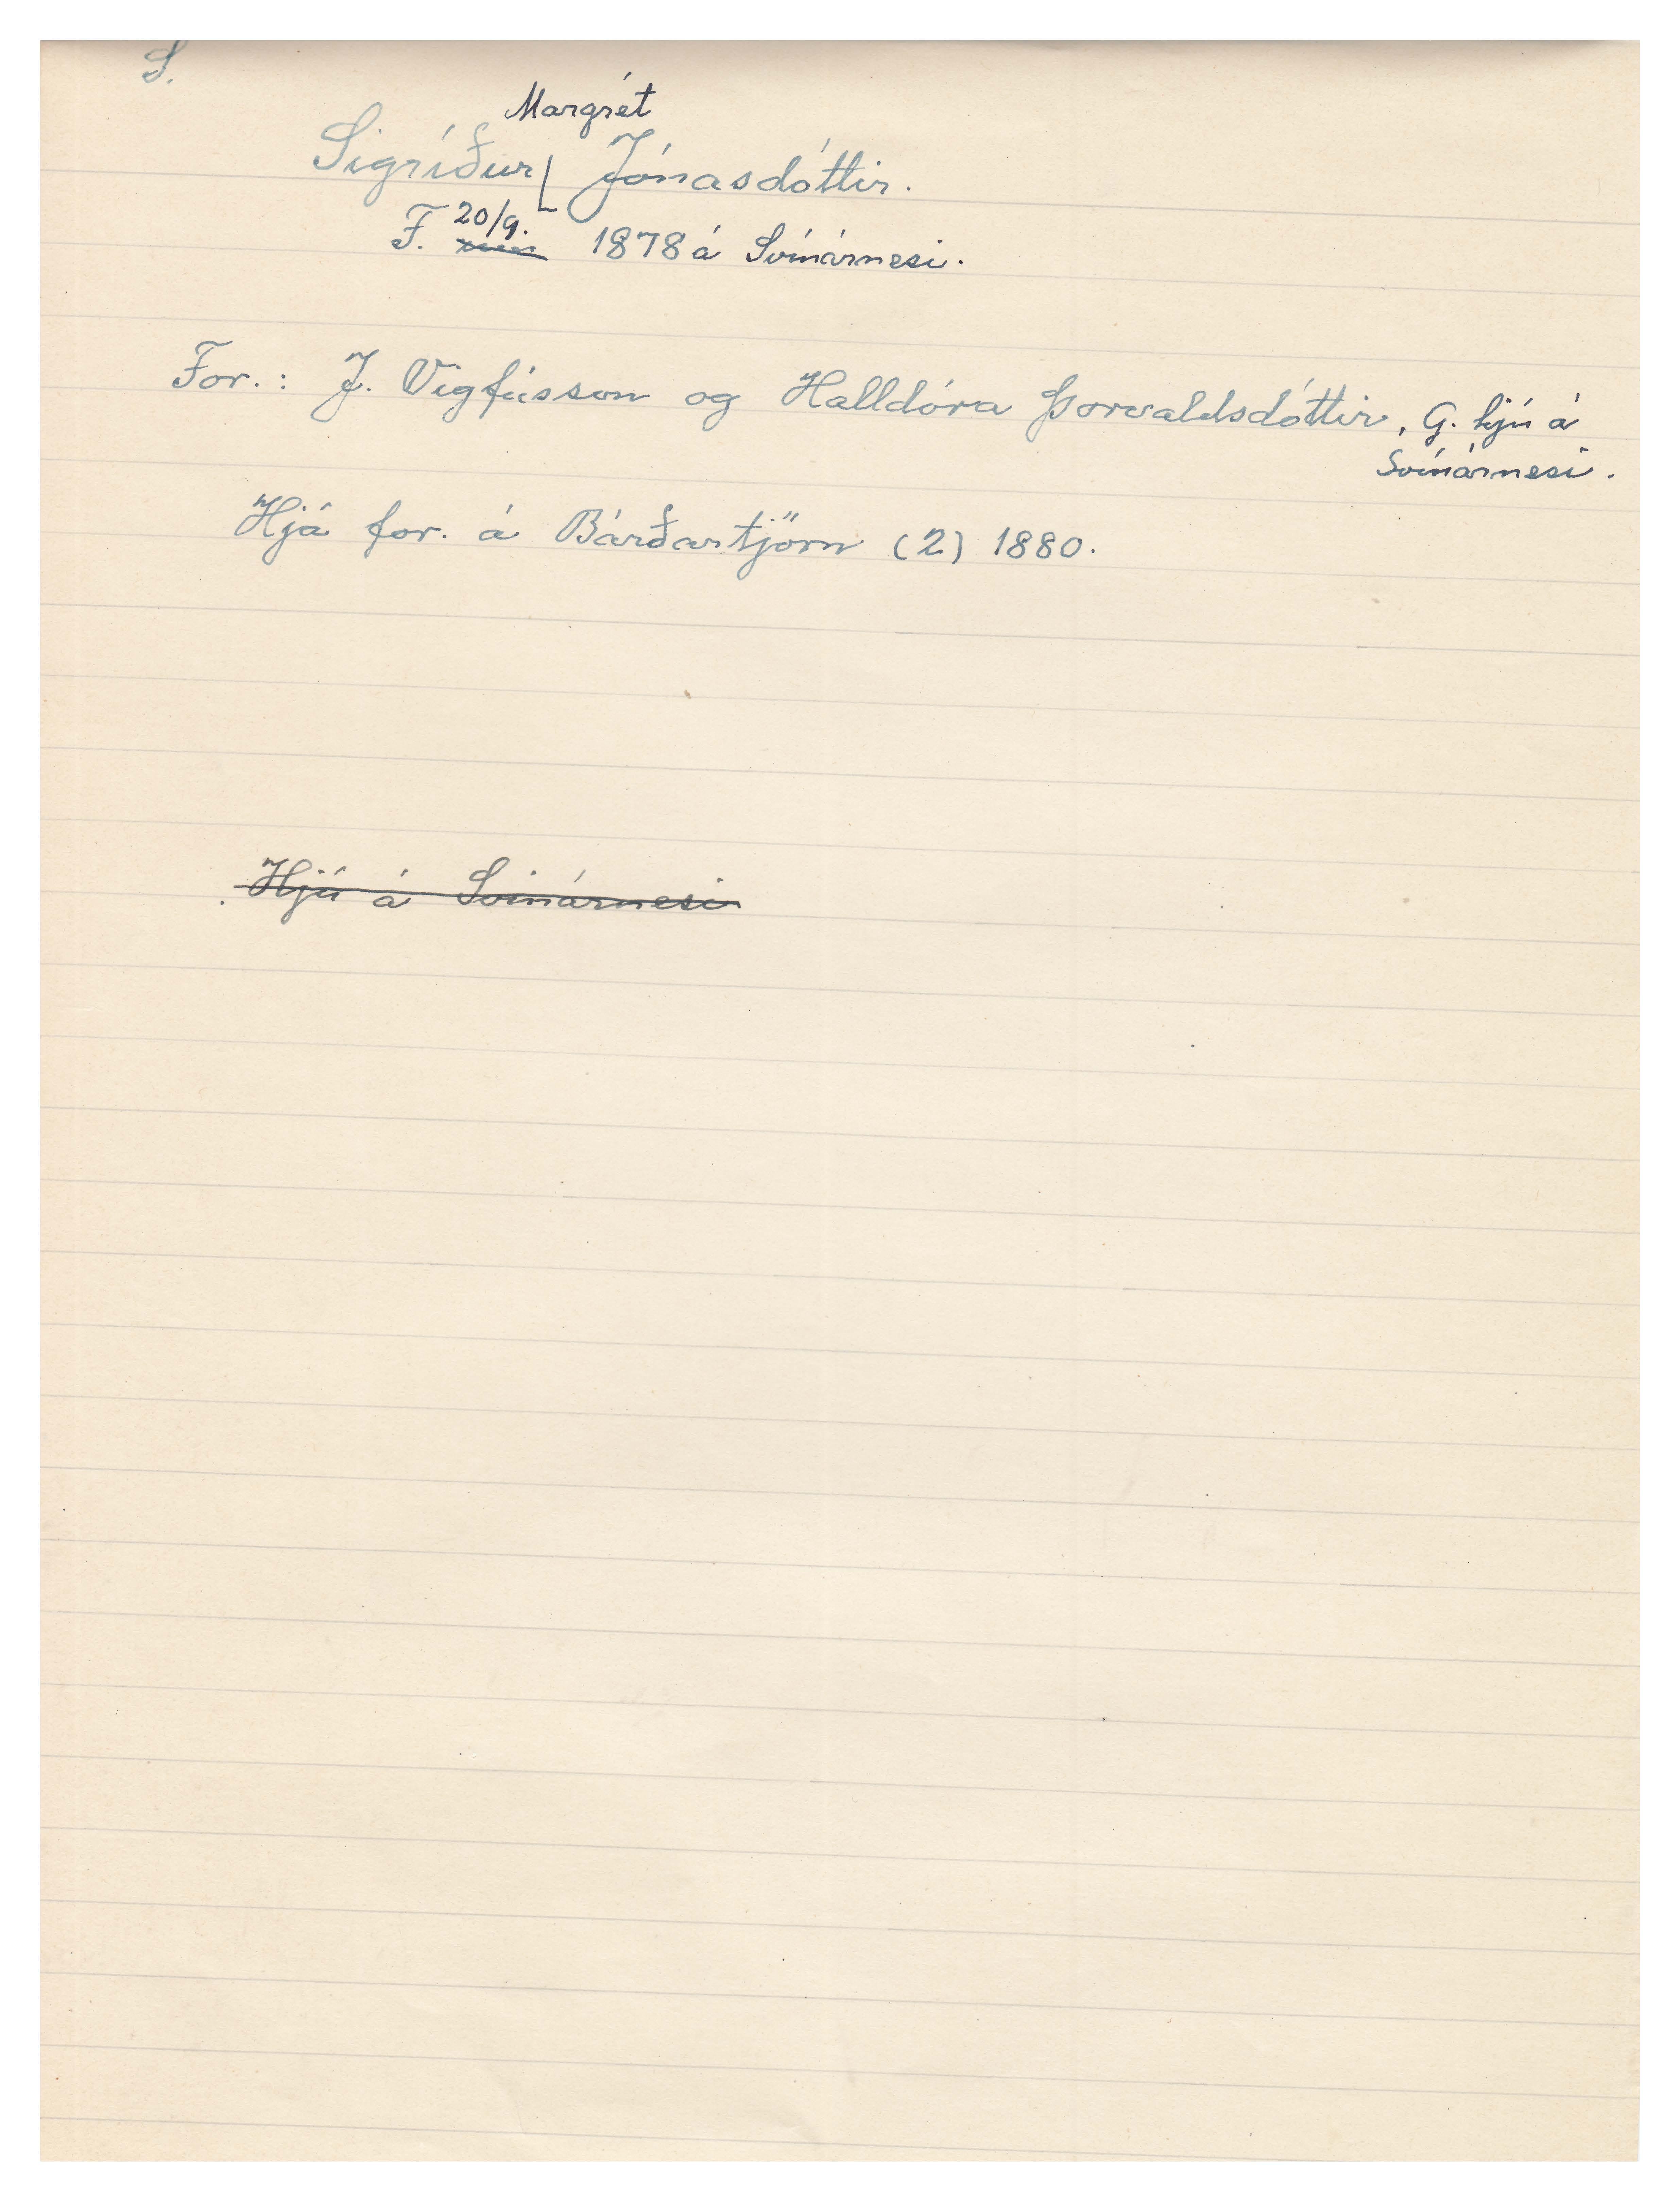 S.
Margrét
Sigríður Jónasdóttir.
20/9.
F. 1878 á Svínárnesi.
For.: J. Vigfússon og Halldóra Þorvaldsdóttir, G. hjú á
Svínárnesi.
Hjá for. á Bárðartjörn (2) 1880.
Hjú á Svínárnesi